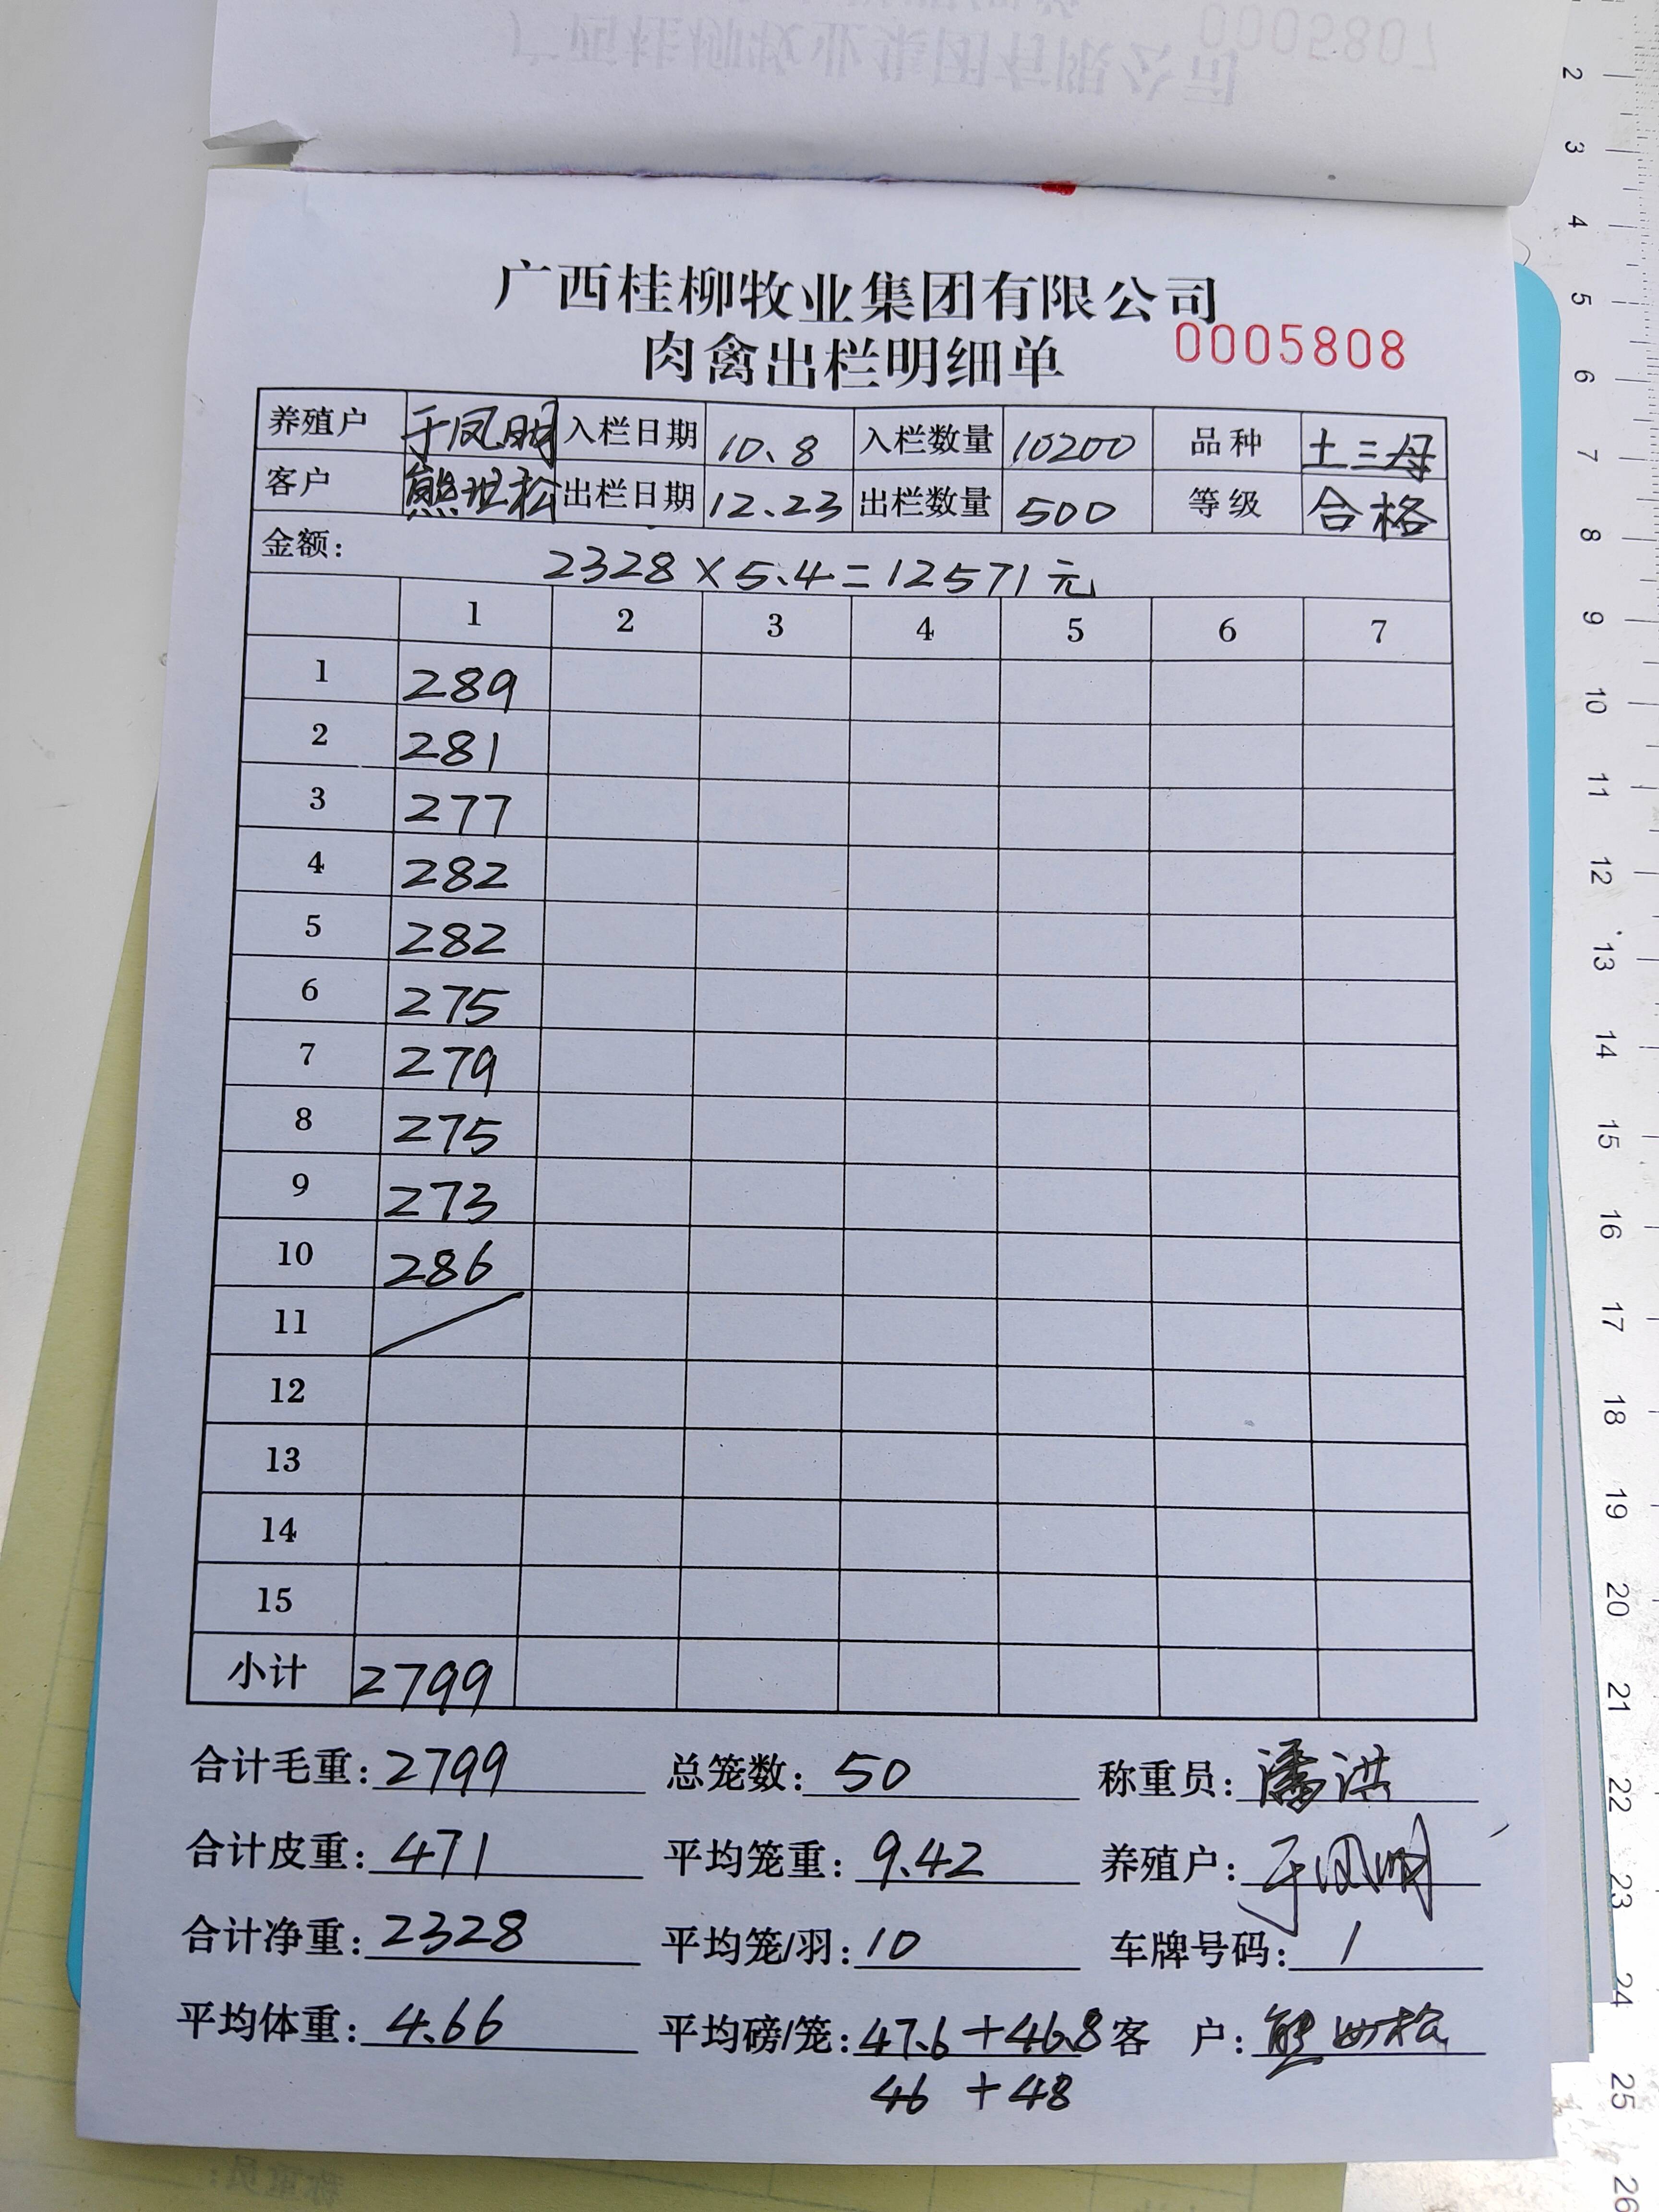 广西桂柳牧业集团有限公司
肉禽出栏明细单 0005808
养殖户 于凤明 入栏日期 10.8 入栏数量 10200 品种 土三母
客户 熊世松 出栏日期 12.23 出栏数量 500 等级 合格
金额: 2328×5.4=12571元
1 2 3 4 5 6 7
1 289
2 281
3 277
4 282
5 282
6 275
7 279
8 275
9 273
10 286
11 /
12
13
14
15
小计 2799
合计毛重: 2799 总笼数: 50 称重员: 潘洪
合计皮重: 471 平均笼重: 9.42 养殖户: 于凤明
合计净重: 2328 平均笼/羽: 10 车牌号码: /
平均体重: 4.66 平均磅/笼: 47.6+46.8 客 户: 熊世松
46 +48